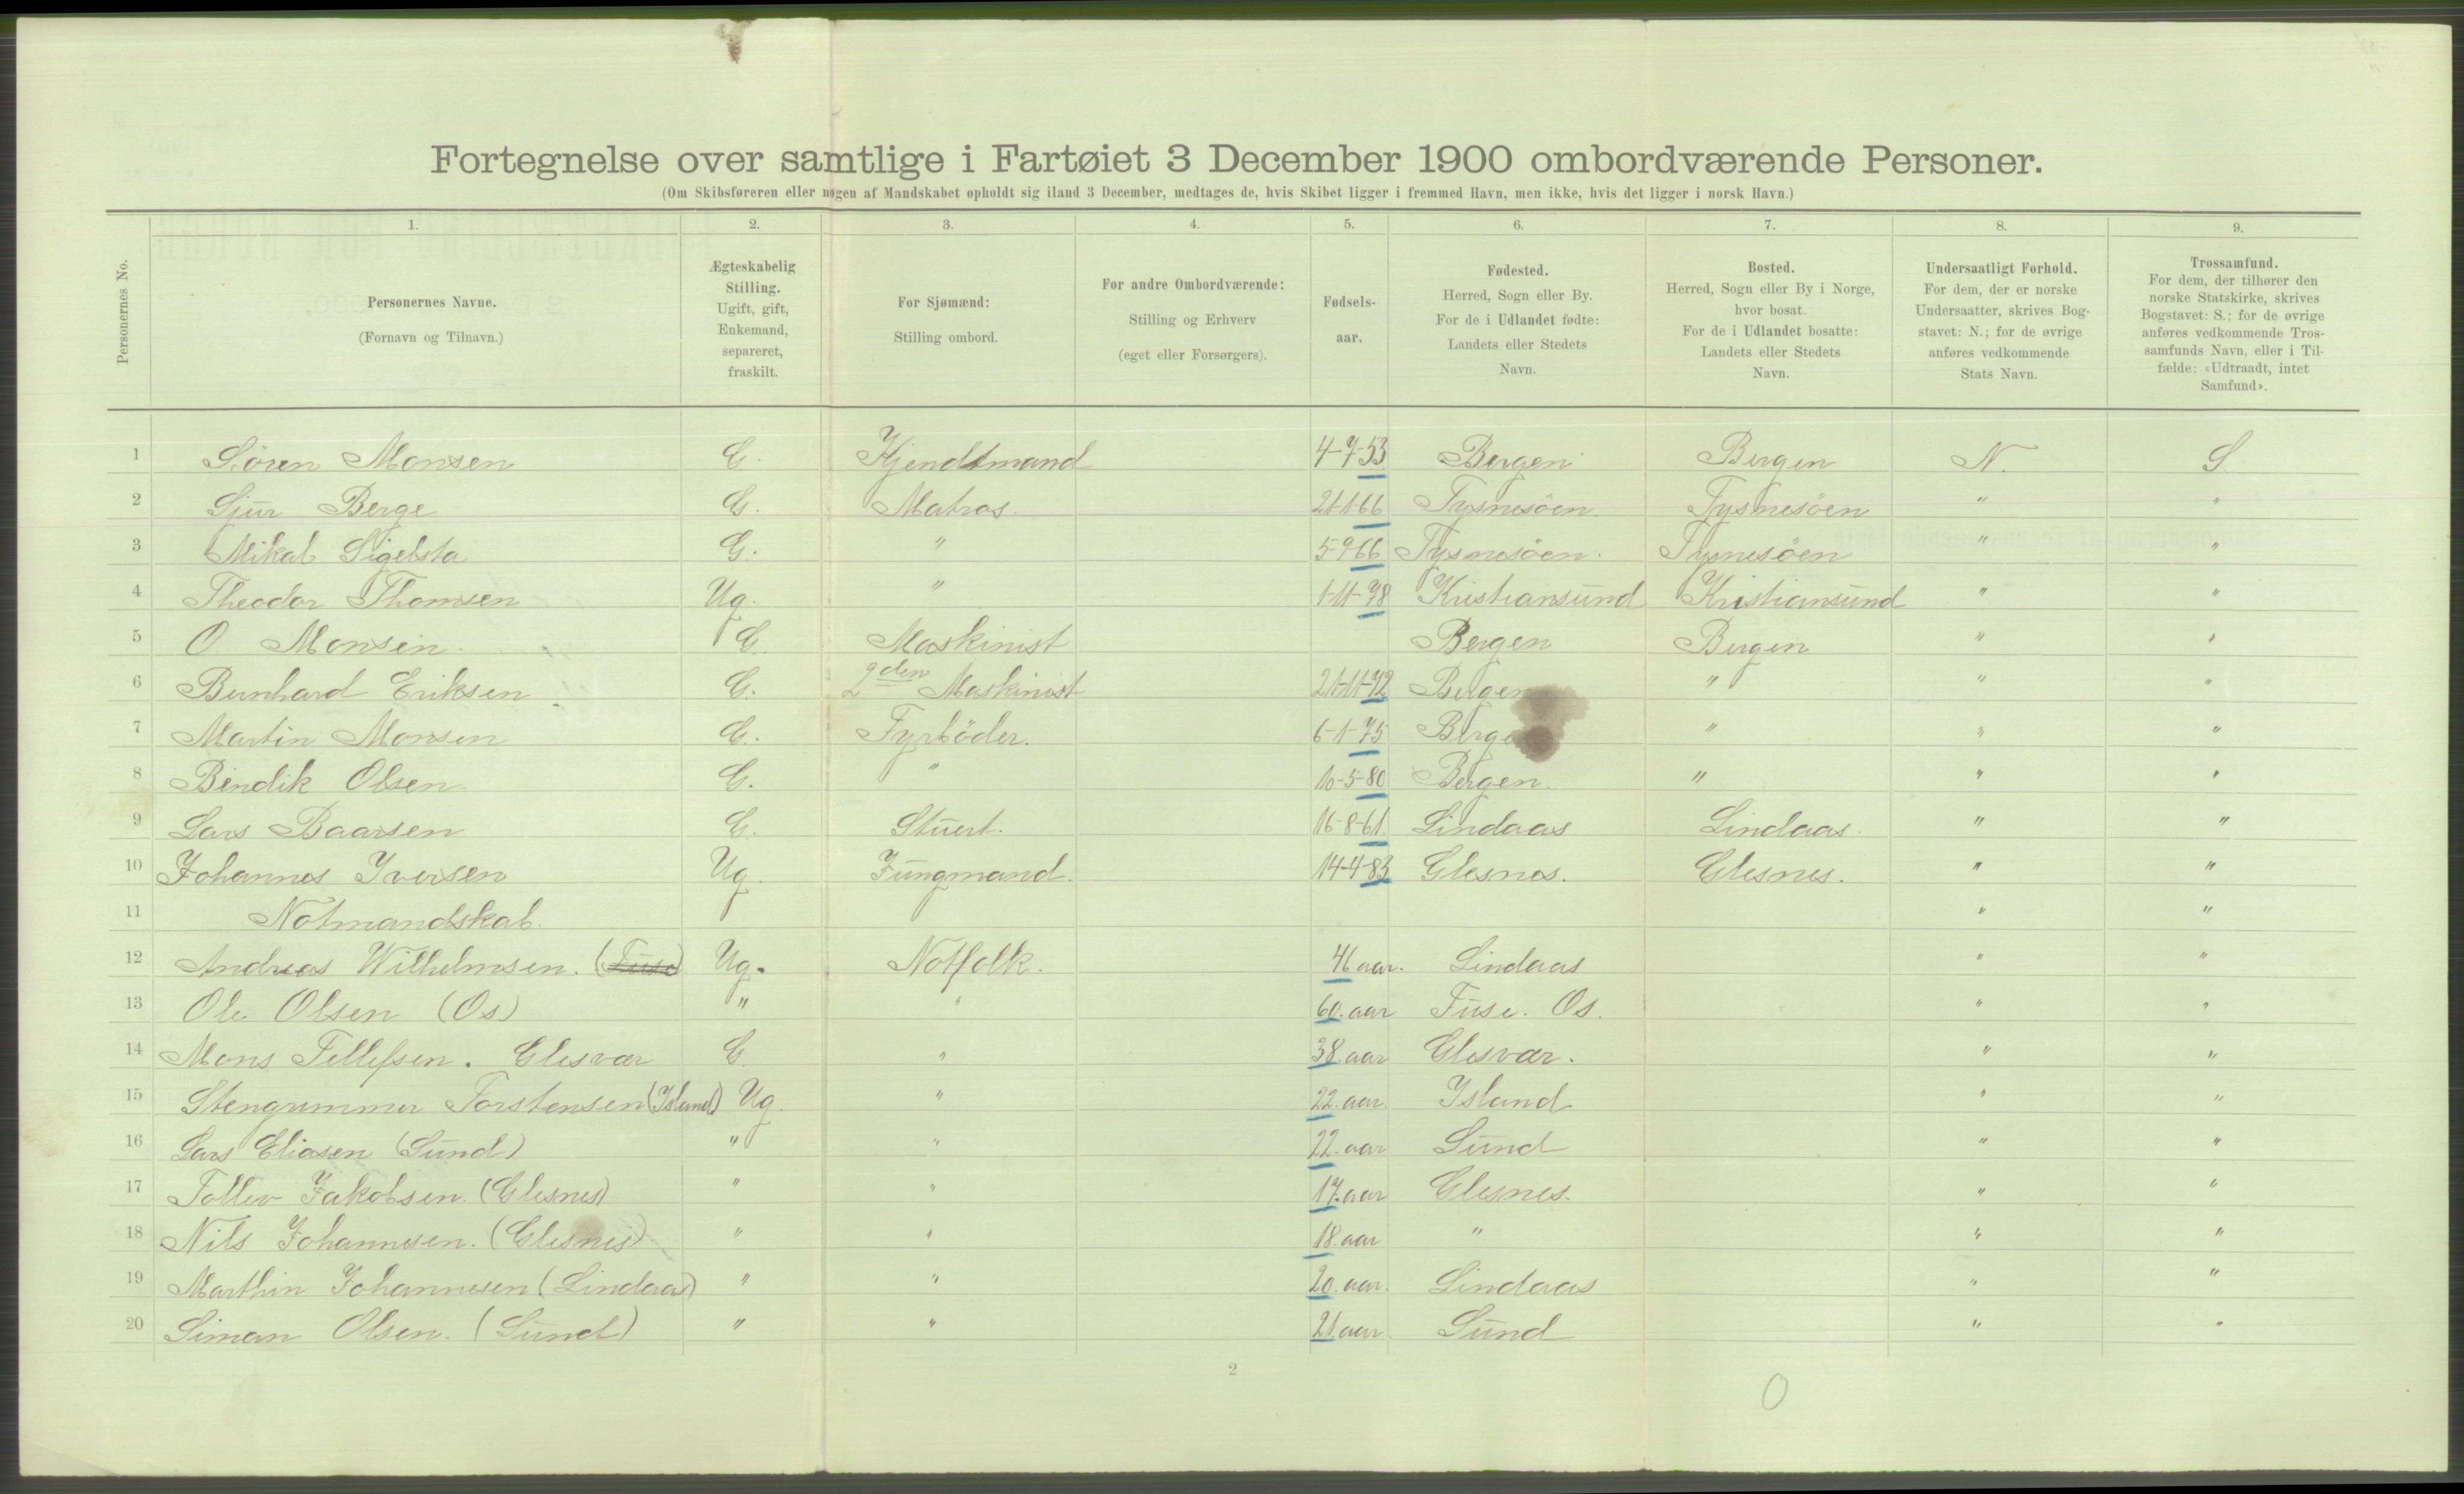 Fortegnelse over samtlige i Fartøiet 3 December 1900 ombordværende Personer.
(Om Skibsføreren eller nogen af Mandskabet opholdt sig iland 3 December, medtages de, hvis Skibet ligger i fremmed Havn, men ikke, hvis det ligger i norsk Havn.)
Personernes No.
1. 2. 3. 4. 5. 6. 7. 8. 9.
Personernes Navne.
(Fornavn og Tilnavn.)
Ægteskabelig
Stilling.
Ugift, gift,
Enkemand,
separeret,
fraskilt.
For Sjømænd:
Stilling ombord.
For andre Ombordværende:
Stilling og Erhverv
(eget eller Forsørgers).
Fødsels-
aar.
Fødested.
Herred, Sogn eller By.
For de i Udlandet fødte:
Landets eller Stedets
Navn.
Bosted.
Herred, Sogn eller By i Norge,
hvor bosat.
For de i Udlandet bosatte:
Landets eller Stedets
Navn.
Undersaatligt Forhold.
For dem, der er norske
Undersaatter, skrives Bog-
stavet: N.; for de øvrige
anføres vedkommende
Stats Navn.
Trossamfund.
For dem, der tilhører den
norske Statskirke, skrives
Bogstavet: S.; for de øvrige
anføres vedkommende Tros-
samfunds Navn, eller i Til-
fælde: «Udtraadt, intet
Samfund».
1 Sören Monsen G. Kjendtmand 4-7-53 Bergen Bergen N. S
2 Sjur Berge G. Matros 21-1-66 Tysnesöen Tysnesöen " "
3 Mikal Sigelsta G. " 5-9-66 Tysnesöen. Tysnesöen " "
4 Theodor Thomsen Ug. " 1-11-78 Kristiansund Kristiansund " "
5 O Monsen. G. Maskinist Bergen Bergen " "
6 Bernhard Eriksen. G. 2den Maskinist 21-11-72 Bergen " " "
7 Martin Monsen G. Fyrböder. 6-1-75 Bergen " " "
8 Bendik Olsen. G. " 10-5-80 Bergen. " " "
9 Lars Baarsen G. Stuert. 16-8-61 Lindaas Lindaas. " "
10 Johannes Iversen Ug. Jungmand. 14-4-83 Glesnes. Glesnes. " "
11 Notmandskab. " "
12 Andreas Wilhelmsen. (Fuse) Ug. Notfolk. 46 aar. Lindaas " "
13 Ole Olsen (Os) " " 60. aar Fuse. Os. " "
14 Mons Tellefsen. Glesvær G. " 38 aar Glesvær. " "
15 Stengrimmur Torstensen (Island) Ug. " 22. aar. Island " "
16 Lars Eliasen (Sund) " " 22. aar Sund " "
17 Tollev Jakobsen. (Glesnes) " " 17. aar Glesnes. " "
18 Nils Johannesen. (Glesnes) " " 18. aar " " "
19 Marthin Johannesen (Lindaas) " " 20. aar. Lindaas " "
20 Siman Olsen. (Sund) " " 21. aar Sund " "
2
0